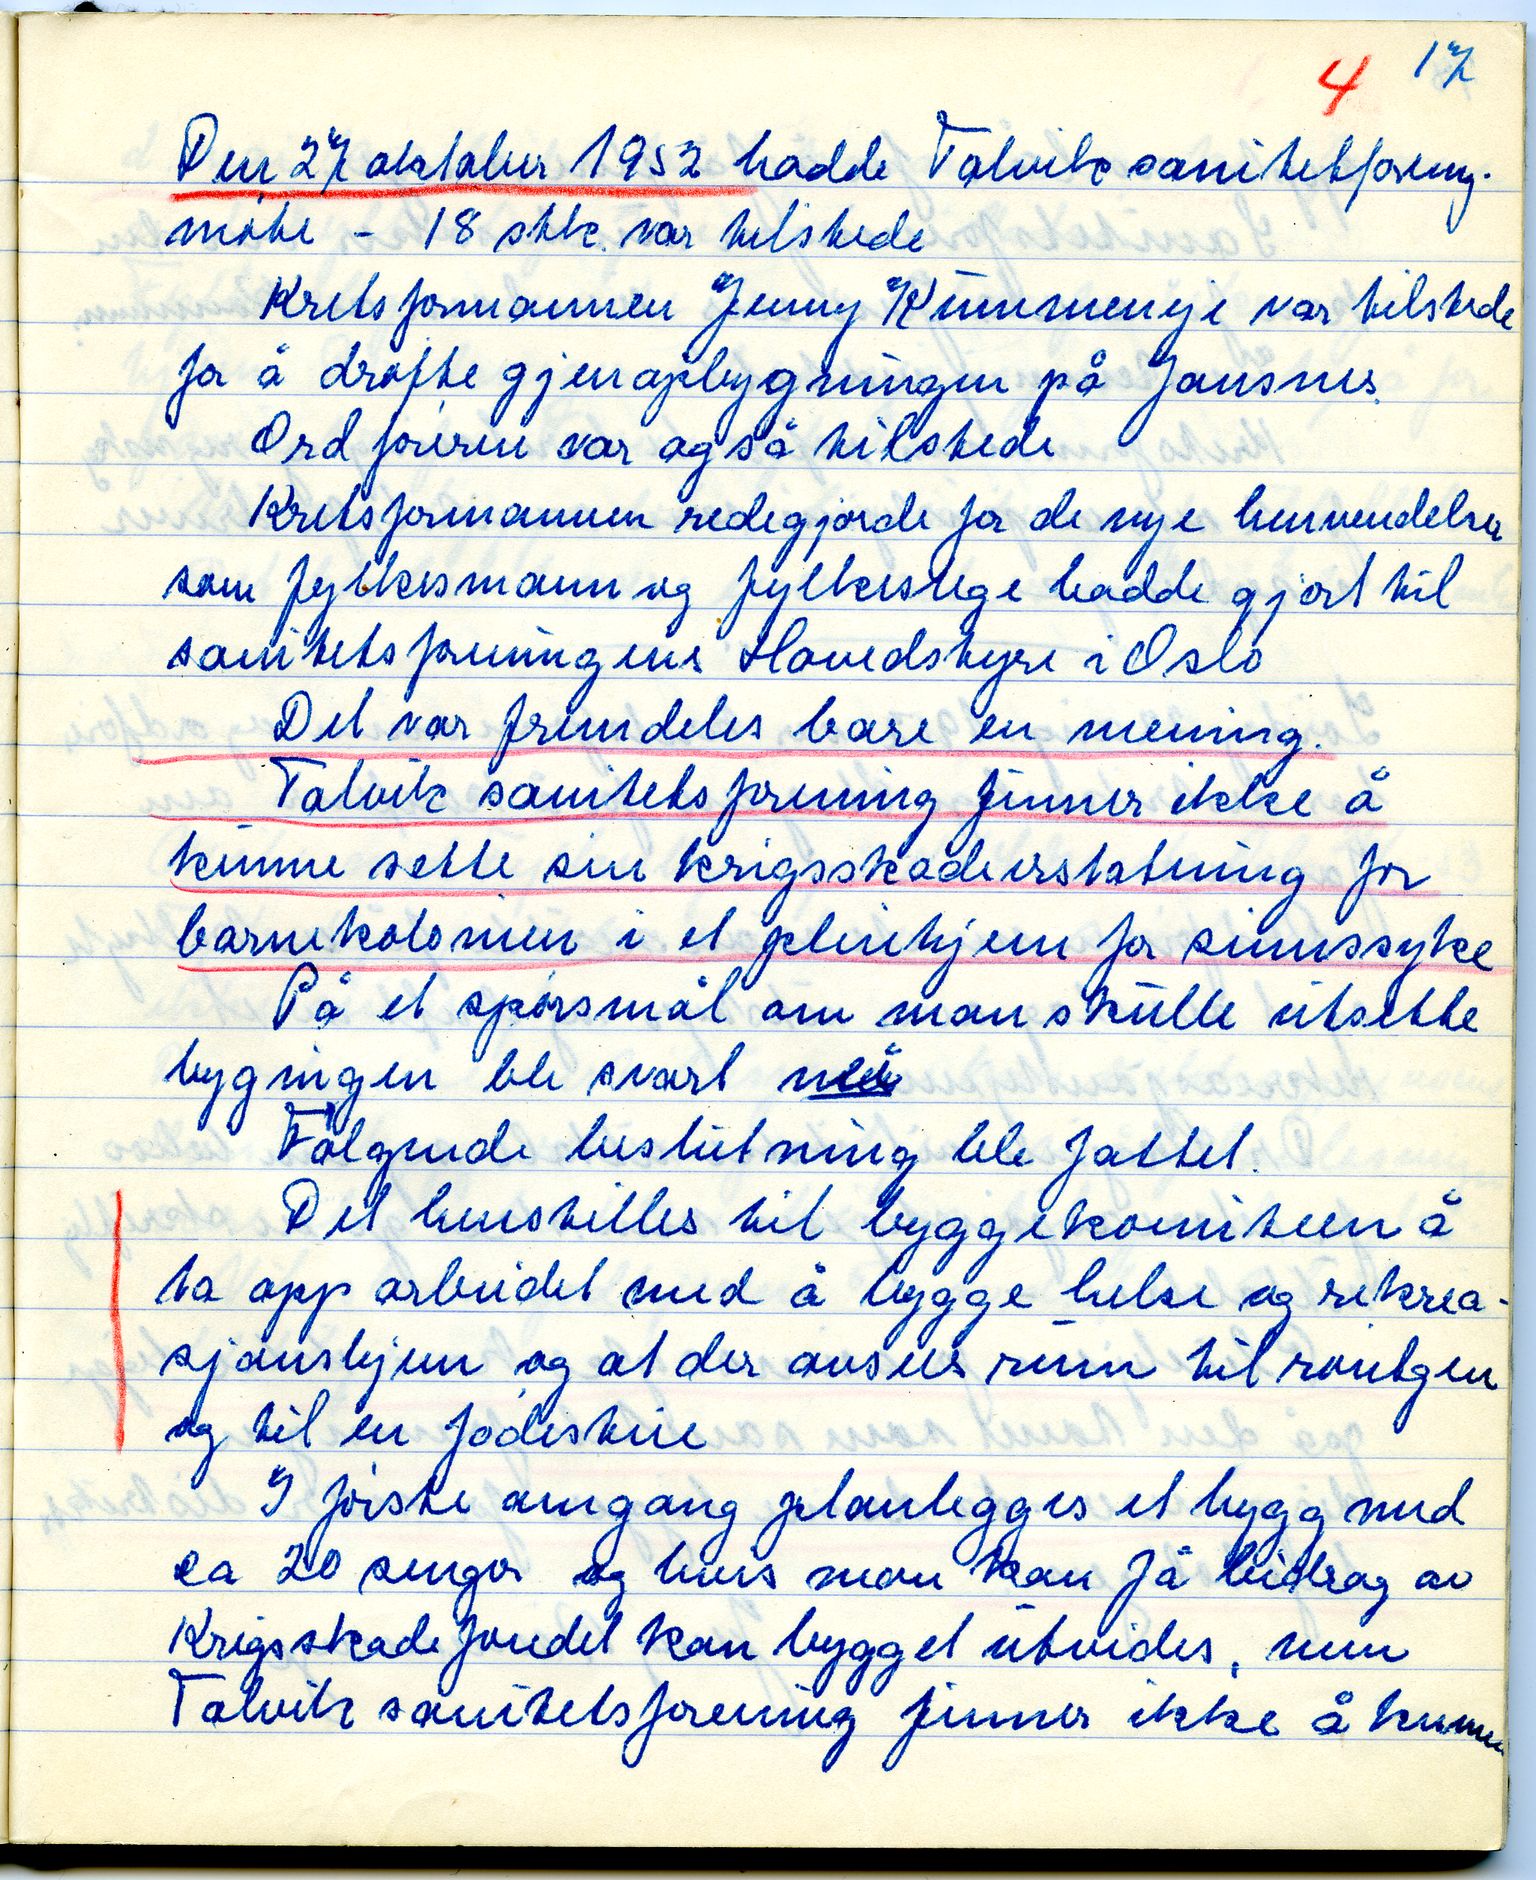 4 17
Den 27 oktober 1952 hadde Talvik sanitetforeng.
møte - 18 stk. var tilstede
Kretsformannen Jenny Kummeneje var tilstede
for å drøfte gjenopbygningen på Jansnes.
Ordføreren var også tilstede
Kretsformannen redegjorde for de nye henvendelser
som fylkesmann og fylkeslege hadde gjort til
sanitetsforeningens Hovedstyre i Oslo
Det var fremdeles bare en mening.
Talvik sanitetsforening finner ikke å
kunne sette sin krigsskadeerstatning for
barnekolonien i et pleiehjem for sinnssyke
På et spørsmål om man skulle utsette
bygningen ble svart nei
Følgende beslutning ble fattet.
Det henstilles til byggekomiteen å
ta opp arbeidet med å bygge helse og rekrea-
sjonshjem og at der avsees rum til røntgen
og til en fødestue
I første omgang planlegges et bygg med
ca 20 senger og hvis man kan få bidrag av
Krigsskadefondet kan bygget utvides, men
Talvik sanitetsforening finner ikke å kunne